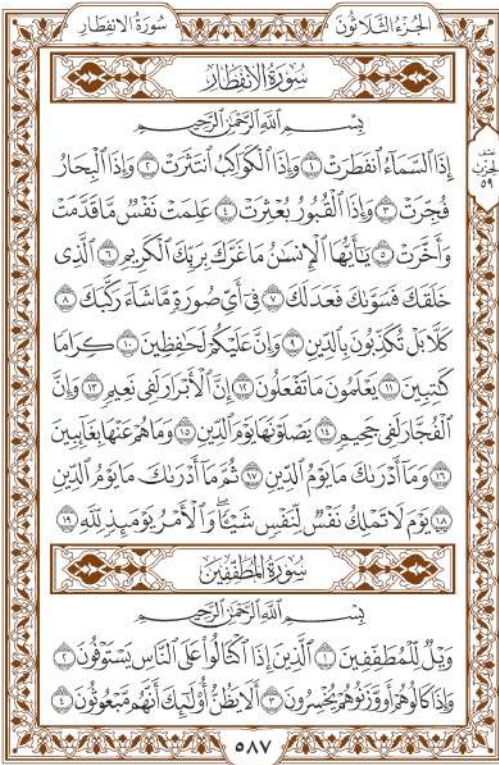 الجُزْءُ الثَّلَاثُونَ سُورَةُ الانفِطَارِ
سُورَةُ الانفِطَارِ
بِسْمِ ٱللَّهِ ٱلرَّحْمَٰنِ ٱلرَّحِيمِ
إِذَا ٱلسَّمَآءُ ٱنفَطَرَتْ ١ وَإِذَا ٱلْكَوَاكِبُ ٱنتَثَرَتْ ٢ وَإِذَا ٱلْبِحَارُ
نصف
الحزب
٥٩
فُجِّرَتْ ٣ وَإِذَا ٱلْقُبُورُ بُعْثِرَتْ ٤ عَلِمَتْ نَفْسٌ مَّا قَدَّمَتْ
وَأَخَّرَتْ ٥ يَٰٓأَيُّهَا ٱلْإِنسَٰنُ مَا غَرَّكَ بِرَبِّكَ ٱلْكَرِيمِ ٦ ٱلَّذِى
خَلَقَكَ فَسَوَّىٰكَ فَعَدَلَكَ ٧ فِىٓ أَىِّ صُورَةٍ مَّا شَآءَ رَكَّبَكَ ٨
كَلَّا بَلْ تُكَذِّبُونَ بِٱلدِّينِ ٩ وَإِنَّ عَلَيْكُمْ لَحَٰفِظِينَ ١٠ كِرَامًا
كَٰتِبِينَ ١١ يَعْلَمُونَ مَا تَفْعَلُونَ ١٢ إِنَّ ٱلْأَبْرَارَ لَفِى نَعِيمٍ ١٣ وَإِنَّ
ٱلْفُجَّارَ لَفِى جَحِيمٍ ١٤ يَصْلَوْنَهَا يَوْمَ ٱلدِّينِ ١٥ وَمَا هُمْ عَنْهَا بِغَآئِبِينَ
١٦ وَمَآ أَدْرَىٰكَ مَا يَوْمُ ٱلدِّينِ ١٧ ثُمَّ مَآ أَدْرَىٰكَ مَا يَوْمُ ٱلدِّينِ
١٨ يَوْمَ لَا تَمْلِكُ نَفْسٌ لِّنَفْسٍ شَيْـًٔا ۖ وَٱلْأَمْرُ يَوْمَئِذٍ لِّلَّهِ ١٩
سُورَةُ المُطَفِّفِينَ
بِسْمِ ٱللَّهِ ٱلرَّحْمَٰنِ ٱلرَّحِيمِ
وَيْلٌ لِّلْمُطَفِّفِينَ ١ ٱلَّذِينَ إِذَا ٱكْتَالُوا۟ عَلَى ٱلنَّاسِ يَسْتَوْفُونَ ٢
وَإِذَا كَالُوهُمْ أَو وَّزَنُوهُمْ يُخْسِرُونَ ٣ أَلَا يَظُنُّ أُو۟لَٰٓئِكَ أَنَّهُم مَّبْعُوثُونَ ٤
٥٨٧